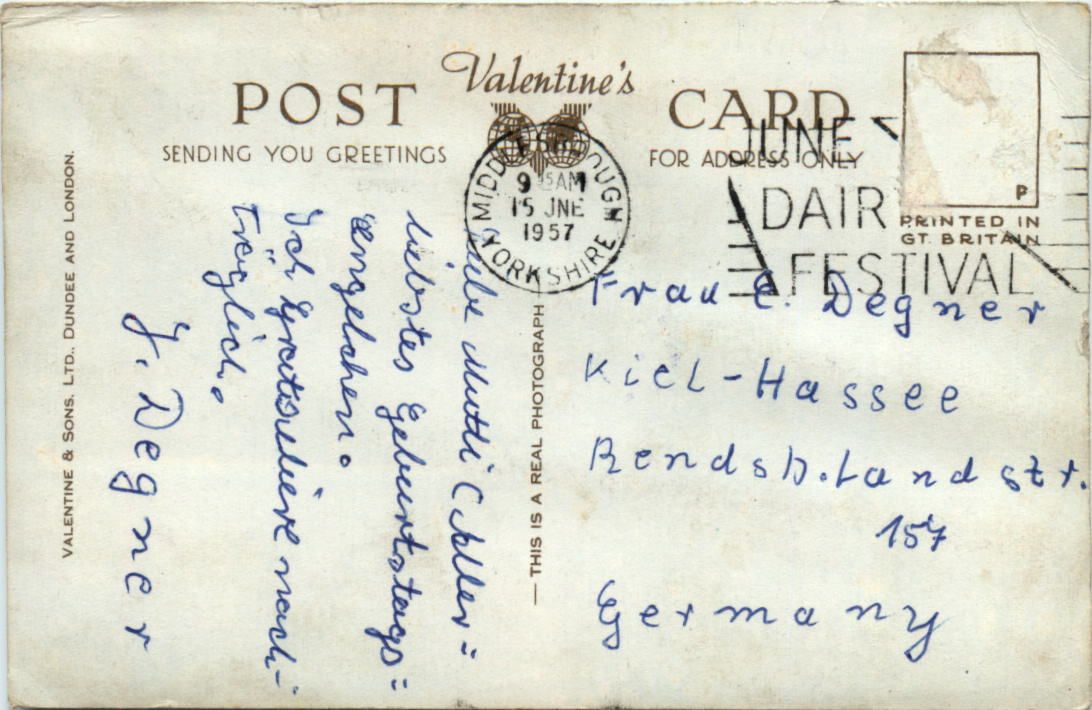 Valentine's
POST CARD
SENDING YOU GREETINGS
FOR ADDRESS ONLY
MIDDLESBROUGH
9 15 AM
15 JNE
1957
YORKSHIRE
JUNE
DAIR
FESTIVAL
P
PRINTED IN
GT. BRITAIN
VALENTINE & SONS, LTD., DUNDEE AND LONDON.
— THIS IS A REAL PHOTOGRAPH —
Liebe Mutti (Aller=
liebstes Geburtstags=
engelchen.
Ich Gratuliere nach-
träglich.
J. Degner
Frau E. Degner
Kiel-Hassee
Rendsb. Landstr.
157
Germany